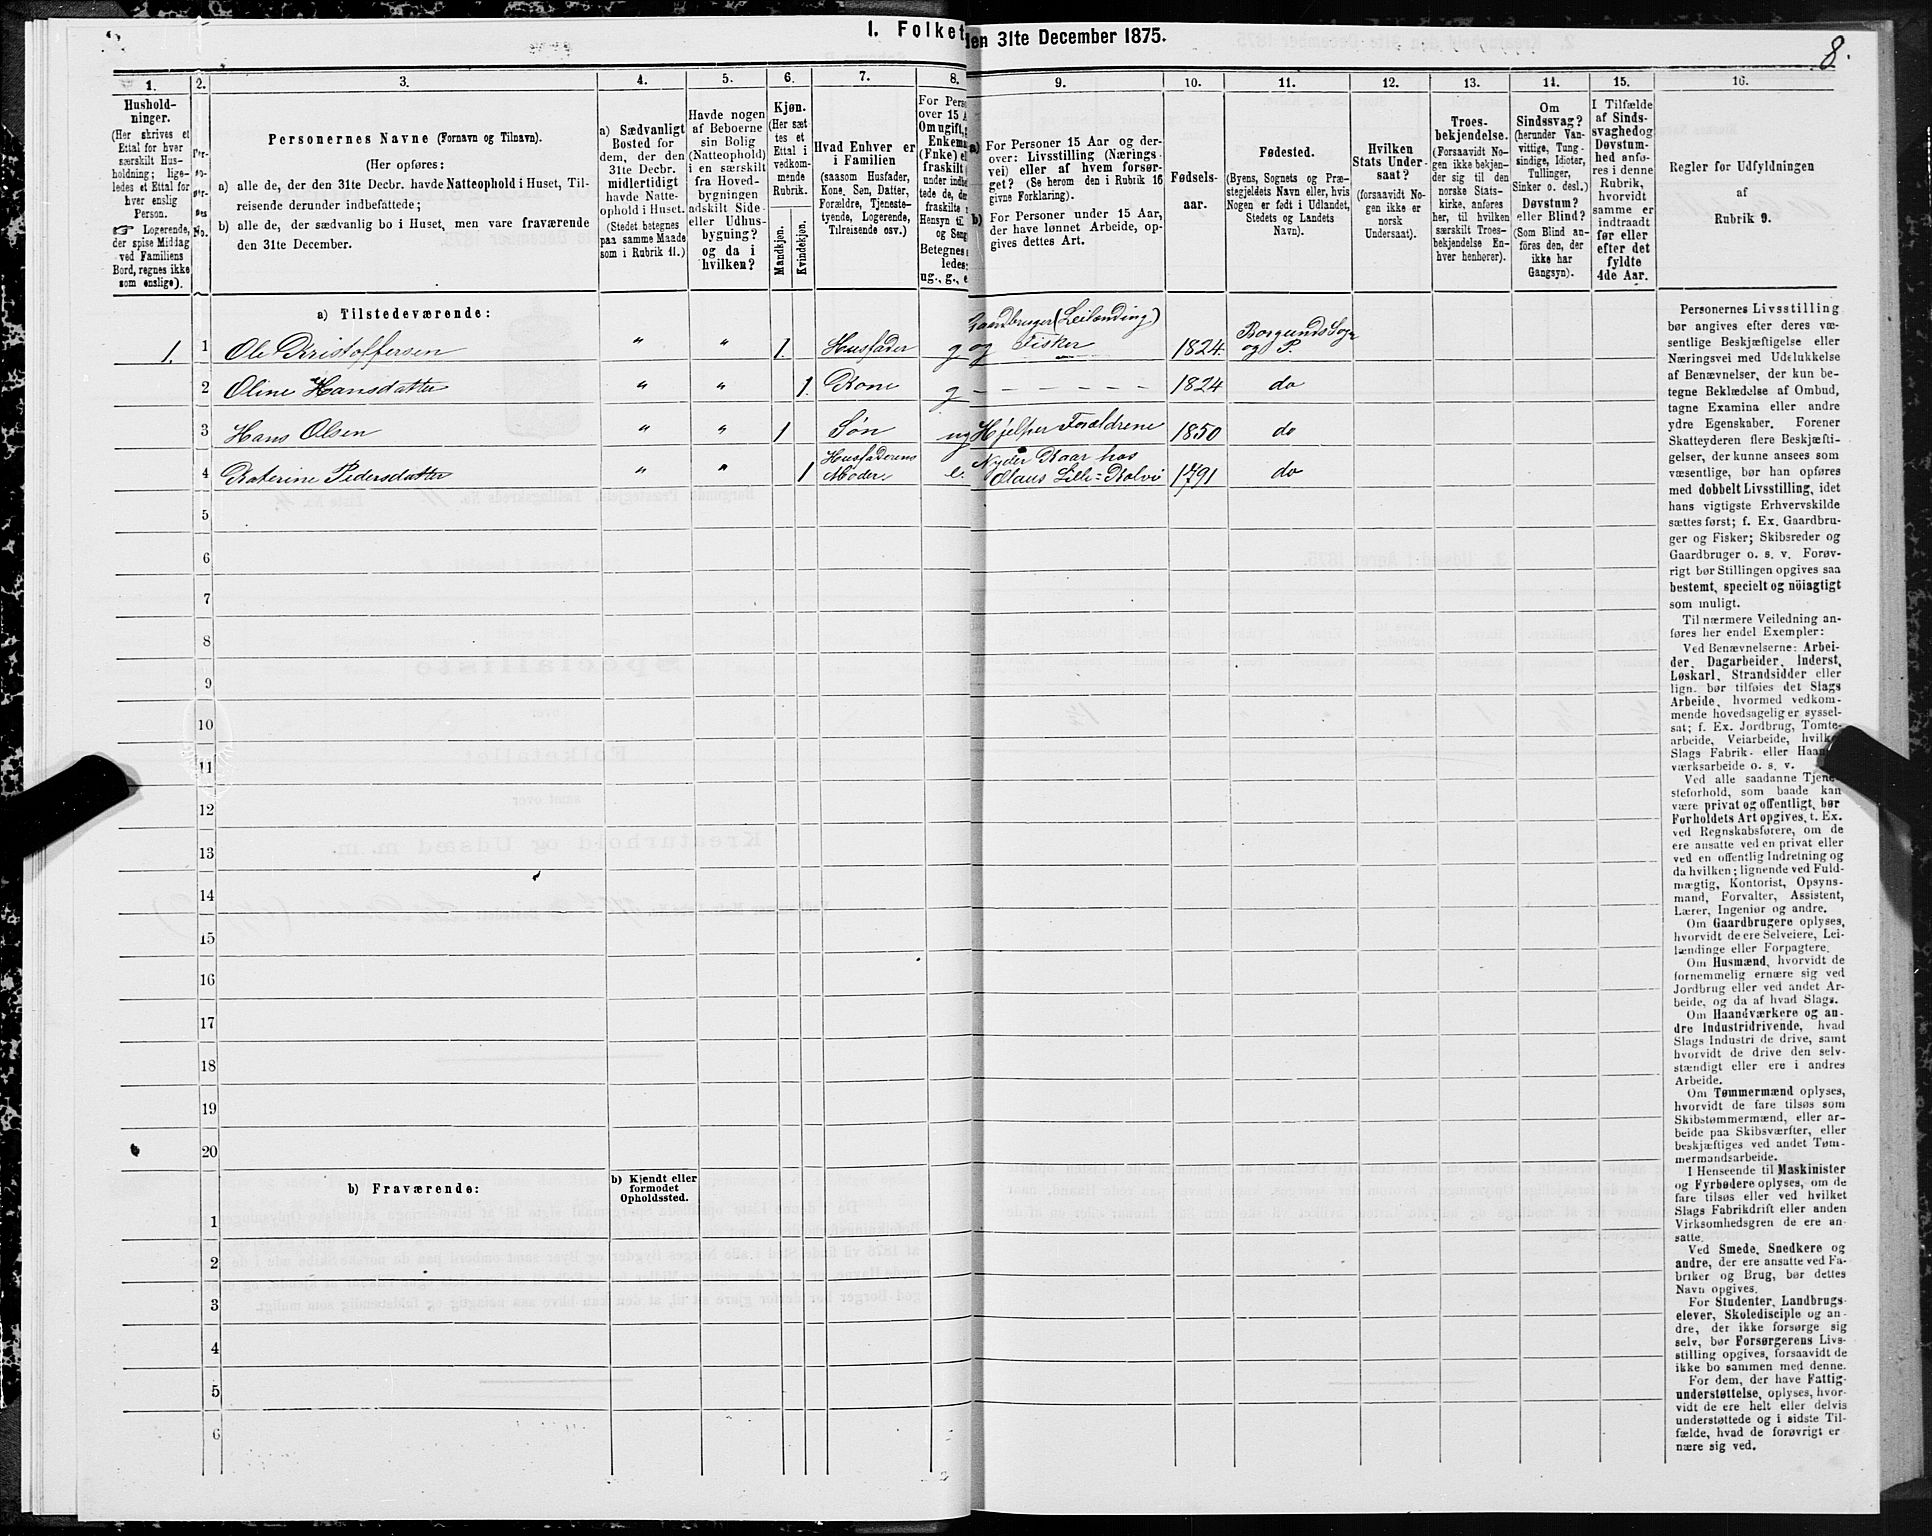 1. Folket
den 31te December 1875.
8.
1.
2.
3.
4.
5.
6.
7.
8.
9.
10.
11.
12.
13.
14.
15.
16.
Hushold-
ninger.
(Her skrives et
Ettal for hver
særskilt Hus-
holdning; lige-
ledes et Ettal for
hver enslig
Person.
☞ Logerende,
der spise Middag
ved Familiens
Bord, regnes ikke
som enslige).
Personernes Navne (Fornavn og Tilnavn).
(Her opføres:
a) alle de, der den 31te Decbr. havde Natteophold i Huset, Til-
reisende derunder indbefattede;
b) alle de, der sædvanlig bo i Huset, men vare fraværende
den 31te December.
a) Sædvanligt
Bosted for
dem, der den
31te Decbr.
midlertidigt
havde Natte-
ophold i Huset.
(Stedet betegnes
paa samme Maade
som i Rubrik 11.)
Havde nogen
af Beboerne
sin Bolig
(Natteophold)
i en særskilt
fra Hoved-
bygningen
adskilt Side-
eller Udhus-
bygning?
og da i
hvilken?
Kjøn.
(Her sæt
tes et
Ettal i
vedkom-
mende
Rubrik.
Mandkjøn.
Kvindekjøn.
Hvad Enhver er
i Familien
(saasom Husfader,
Kone, Søn, Datter,
Forældre, Tjeneste-
tyende, Logerende,
Tilreisende osv.)
For Pers
over 15 A
Om ugift, g
Enkema
(Fnke) el
fraskilt
under indbe
tede de, de
fraskilte
Hensyn til
og Seng
Betegnes
ledes:
ug., g., e
a) For Personer 15 Aar og der-
over: Livsstilling (Nærings-
vei) eller af hvem forsør-
get? (Se herom den i Rubrik 16
givne Forklaring).
b) For Personer under 15 Aar,
der have lønnet Arbeide, op-
gives dettes Art.
Fødsels-
aar.
Fødested.
(Byens, Sognets og Præ-
stegjeldets Navn eller, hvis
Nogen er født i Udlandet,
Stedets og Landets
Navn).
Hvilken
Stats Under-
saat?
(forsaavidt No-
gen ikke er
norsk
Undersaat).
Troes-
bekjendelse.
(Forsaavidt No-
gen ikke bekjen-
der sig til den
norske Stats-
kirke, anføres
her, til hvilken
særskilt Troes-
bekjendelse En-
hver henhører).
Om
Sindssvag?
(herunder Van-
vittige, Tung-
sindige, Idioter,
Tullinger,
Sinker o. desl.)
Døvstum?
eller Blind?
(Som Blind an-
føres den, der
ikke har
Gangsyn).
I Tilfælde
af Sinds-
svaghed og
Døvstum-
hed anfø-
res i denne
Rubrik,
hvorvidt
samme er
indtraadt
før eller
efter det
fyldte
4de Aar.
Regler for Udfyldningen
af
Rubrik 9.
a) Tilstedeværende:
1. 1 Ole Kristoffersen " " 1. Husfader g Gaardbruger (Leilænding) og Fisker 1824. Borgunds Sogn og P.
2 Oline Hansdatter " " 1. Kone g - - - - - - 1824 do
3 Hans Olsen " " 1 Søn ug Hjelper Forældrene 1850 do
4 Katerine Pedersdatter " " 1 Husfaderens Moder e. Nyder Kaar hos Olaus Lille-Kalvø 1791 do
5
6
7
8
9
10
11
12
13
14
15
16
17
18
19
20
b) Fraværende:
b) Kjendt eller
formodet
Opholdssted.
1
2
3
4
5
6
Personernes Livsstilling
bør angives efter deres væ-
sentlige Beskjæftigelse eller
Næringsvei med Udelukkelse
af Benævnelser, der kun be-
tegne Beklædelse af Ombud,
tagne Examina eller andre
ydre Egenskaber. Forener
Skatteyderen flere Beskjæfti-
gelser, der kunne ansees som
væsentlige, bør han opføres
med dobbelt Livsstilling, idet
hans vigtigste Erhvervskilde
sættes først; f. Ex. Gaardbru-
ger og Fisker; Skibsreder og
Gaardbruger o. s. v. Forøv-
rigt bør Stillingen opgives saa
bestemt, specielt og nöiagtigt
som muligt.
Til nærmere Veiledning an-
føres her endel Exempler:
Ved Benævnelserne: Arbei-
der, Dagarbeider, Inderst,
Løskarl, Strandsidder eller
lign. bør tilføies det Slags
Arbeide, hvormed vedkom-
mende hovedsagelig er syssel-
sat; f. Ex. Jordbrug, Tomte-
arbeide, Veiarbeide, hvilket
Slags Fabrik- eller Haand-
værksarbeide o. s. v.
Ved alle saadanne Tjene-
steforhold, som baade kan
være privat og offentligt, bør
Forholdets Art opgives, t. Ex.
ved Regnskabsførere, om de
ere ansatte ved en privat eller
ved en offentlig Indretning og
da hvilken; lignende ved Fuld-
mægtig, Kontorist, Opsyns-
mand, Forvalter, Assistent,
Lærer, Ingeniør og andre.
Om Gaardbrugere oplyses,
hvorvidt de ere Selveiere, Lei-
lændinge eller Forpagtere.
Om Husmænd, hvorvidt de
fornemmelig ernære sig ved
Jordbrug eller ved andet Ar-
beide, og da af hvad Slags.
Om Haandværkere og an-
dre Industridrivende, hvad
Slags Industri de drive, samt
hvorvidt de drive den selv-
stændigt eller ere i andres
Arbeide.
Om Tømmermænd oplyses,
hvorvidt de fare tilsøs som
Skibstømmermænd, eller ar-
beide paa Skibsværfter, eller
beskjæftiges ved andet Tøm-
mermandsarbeide.
I Henseende til Maskinister
og Fyrbødere oplyses, om de
fare tilsøs eller ved hvilket
Slags Fabrikdrift eller anden
Virksomhedsgren de ere an-
satte.
Ved Smede, Snedkere og
andre, der ere ansatte ved Fa-
briker og Brug, bør dettes
Navn opgives.
For Studenter, Landbrugs-
elever, Skoledisciple og an-
dre, der ikke forsørge sig
selv, bør Forsørgerens Livs-
stilling opgives, forsaavidt de
ikke bo sammen med denne.
For dem, der have Fattig-
understøttelse, oplyses, hvor-
vidt de ere helt eller delvis
understøttede og i sidste Til-
fælde, hvad de forøvrigt er
nære sig ved.